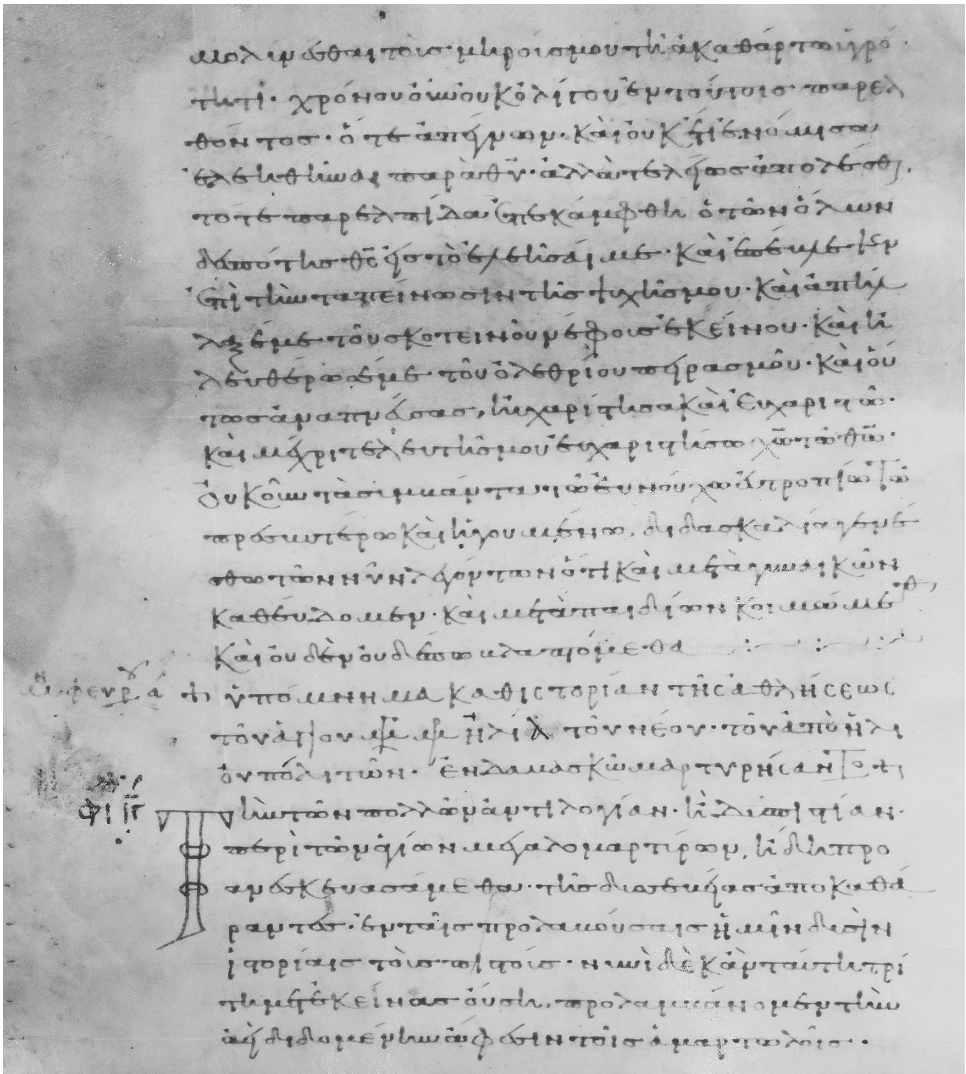 μολιρώσθαι τοῖς μηροῖς μου τῆ ἀκαθάρτω ὑγρό
τητι. χρόνου οὖν οὐκ ὀλίγου ἐν τούτοις παρελ
θόντος. ὅτε ἀπεῖπων. καὶ οὐκ ἔτι ἐνόμισα
ἐλεηθῆναι παρὰ θυ. ἀλλὰ τελείως ἀπολέσθαι.
τότε παρ ἐλπίδα ἐπεκάμφθη ὁ τῶν ὅλων
δεσπότης θς εἰς τὸ ἐλεῆσαί με. καὶ ἐπέβλεψεν
ἐπὶ τὴν ταπείνωσιν τῆς ψυχῆς μου. καὶ ἀπήλ
λαξέ με τοῦ σκοτεινοῦ νέφους ἐκείνου. καὶ ἠ
λευθέρωσέ με τοῦ ὀλεθρίου πειρασμοῦ. καὶ οὕ
τως ἀναπνεύσας, ηὐχαρίστησα καὶ εὐχαριστῶ.
καὶ μέχρι τελευτῆς μου εὐχαριστήσω χω τῶ θω.
Οὐκοῦν τὰ συμβάντα τῶ εὐνούχω
πρεσβυτέρω καὶ ἡγουμένω, διδασκαλία γενέ
σθω τῶν νῦν λεγόντων ὅτι καὶ μετὰ γυναικῶν
καθεύδομεν. καὶ μετὰ παιδίων κοιμώμεθα
καὶ οὐδὲν οὐδέπω βλαπτόμεθα
φευρ α ὑπόμνημα καθ ἱστορίαν τῆς ἀθλήσεως
τοῦ ἁγίου ἠλία τοῦ νέου. τοῦ ἀπὸ ἡλι
ουπόλιτῶν. ἐν δαμασκῶ μαρτυρήσαντος
Τὴν τῶν πολλῶν ἀντιλογίαν. ἢ δι ἀπιστίαν.
περὶ τῶν ἁγίων μεγαλομαρτύρων, ἤδη προ
αρεσκευασάμεθα. τῆς
ραντες. ἐν ταῖς προλαβούσαις ἡμῖν δυσὶν
ἱστορίαις τοῖς πιστοῖς. νυνὶ δὲ κἀν ταύτη τρί
τη μετ ἐκείνας οὔση, προλαμβάνομεν τὴν
ἀεὶ διδομένην ἄφεσιν τοῖς ἁμαρτωλοῖς.